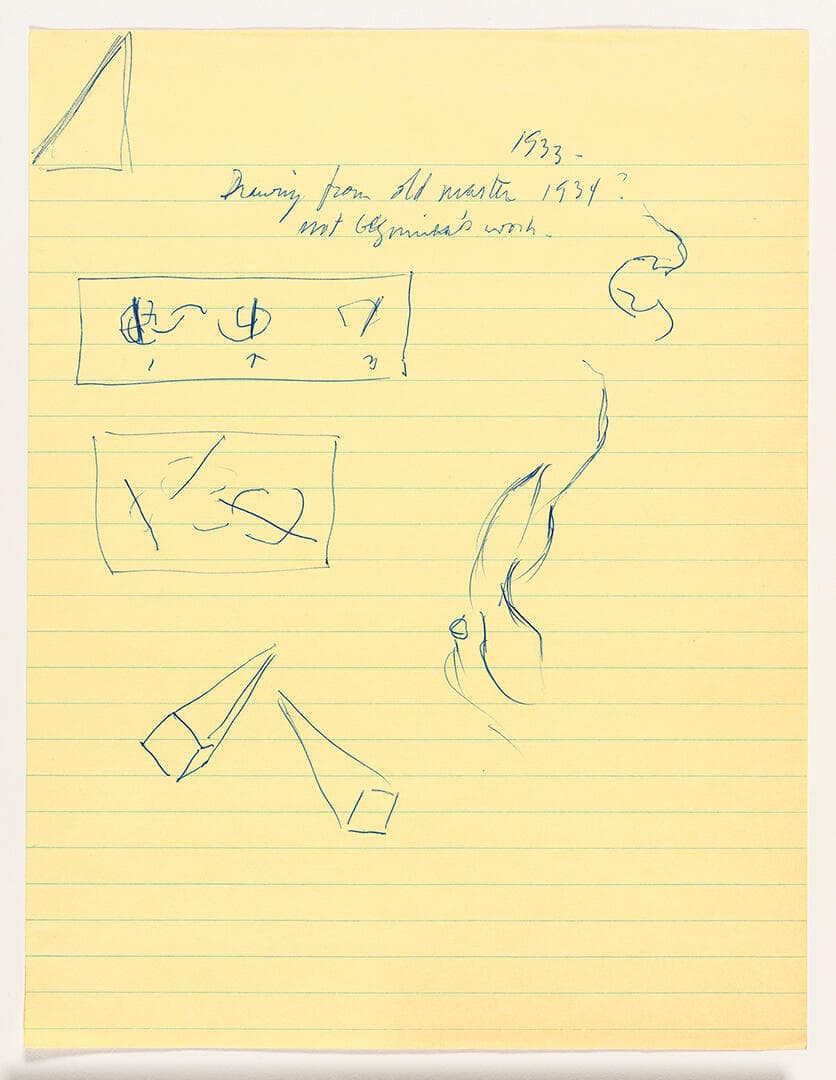 1933 -
Drawing from old master 1934?
not work.
1 2 3